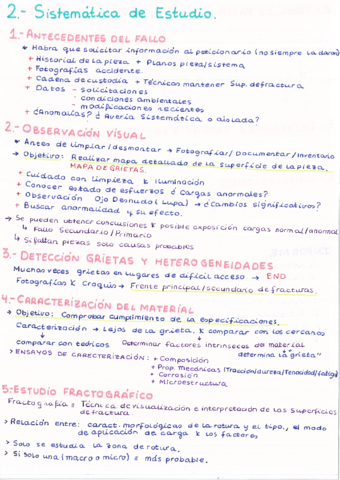 2.- Sistemática de Estudio.
1.- ANTECEDENTES DEL FALLO
* Habrá que solicitar información al peticionario (no siempre la darán)
+ Historial de la pieza + Planos pieza/sistema
+ Fotografías accidente.
+ Cadena de custodia + Técnicas mantener Sup. defractura
+ Datos - solicitaciones
- condiciones ambientales
- modificaciones recientes
+ ¿Anomalías? ¿Avería Sistemática o aislada?
2.- OBSERVACIÓN VISUAL
* Antes de limpiar/desmontar → Fotografiar/Documentar/Inventario
→ Objetivo: Realizar mapa detallado de la superficie de la pieza.
MAPA DE GRIETAS.
+ Cuidado con limpieza & iluminación
+ Conocer estado de esfuerzos ¿Cargas anormales?
+ Observación Ojo Desnudo (Lupa) → ¿Cambios significativos?
+ Buscar anormalidad y su efecto.
→ Se pueden obtener conclusiones & posible exposición cargas normal/anormal
↳ Fallo Secundario/Primario
↳ Si faltan piezas solo causas probables
3.- DETECCIÓN GRIETAS Y HETEROGENEIDADES
Muchas veces grietas en lugares de difícil acceso → END
Fotografías & Croquis → Frente principal/secundario de fracturas.
4.- CARACTERIZACIÓN DEL MATERIAL
→ Objetivo: Comprobar cumplimiento de las especificaciones.
Caracterización → Lejos de la grieta. & comparar con los cercanos
comparar con teóricos Determinar factores intrínsecos de material
"determina la grieta"
> ENSAYOS DE CARECTERIZACIÓN: + Composición
+ Prop. Mecánicas (Tracción/dureza/Tenacidad/Fatiga)
+ Corrosión
+ Microestructura
5.- ESTUDIO FRACTOGRÁFICO
Fractografía = Técnica de visualización e interpretación de las superficies
de fractura.
> Relación entre: caract. morfológicas de la rotura y el tipo, el modo
de aplicación de carga & los factores
> Solo se estudia la zona de rotura.
> Si solo una (macro o micro) = más probable.